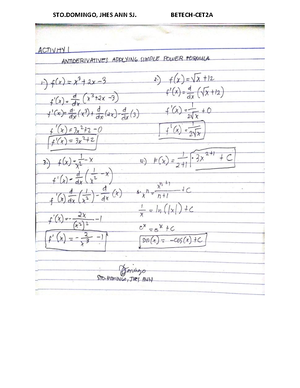 STO.DOMINGO, JHES ANN SJ. BETECH-CET2A
ACTIVITY 1
ANTIDERIVATIVES APPLYING SIMPLE POWER FORMULA
1) f(x) = x³ + 2x - 3
f'(x) = d/dx (x³ + 2x - 3)
f'(x) = d/dx (x³) + d/dx (2x) - d/dx (3)
f'(x) = 3x² + 2 - 0
f'(x) = 3x² + 2
2) f(x) = √x + 12
f'(x) = d/dx (√x + 12)
f'(x) = 1/2√x + 0
f'(x) = 1/2√x
3) f(x) = 1/x² - x
f'(x) = d/dx (1/x² - x)
f'(x) d/dx (1/x²) - d/dx (x)
f'(x) = - 2x/(x²)² - 1
f'(x) = - 2/x³ - 1
F(x) = 1/2+1 · 3x²⁺¹ + C
xⁿ = xⁿ⁺¹/n+1 + C
1/x = ln(|x|) + C
eˣ = eˣ + C
sin(x) = -cos(x) + C
STO.DOMINGO, JHES ANN